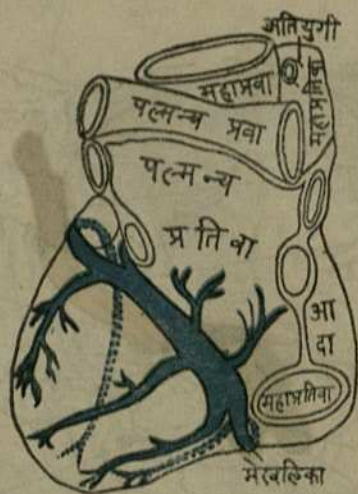 अतियुगी
महाप्रवा
महाप्रतिवा
पल्मन्य प्रवा
पल्मन्य
प्रतिवा
आ
दा
महाप्रतिवा
मेखलिका